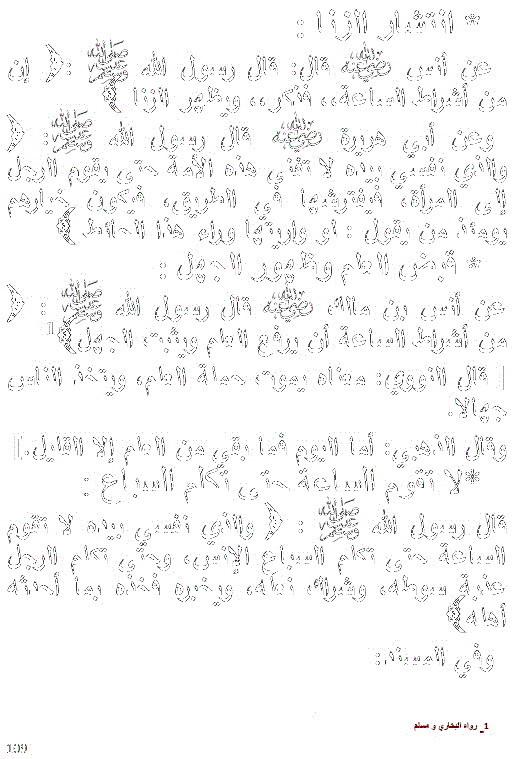 * انتشار الزنا :
عن أنس ﵁ قال: قال رسول الله ﷺ :﴿ إن
من أشراط الساعة،، فذكر،، ويظهر الزنا ﴾
وعن أبي هريرة ﵁ قال رسول الله ﷺ: ﴿
والذي نفسي بيده لا تفنى هذه الأمة حتى يقوم الرجل
إلى المرأة، فيفترشها في الطريق، فيكون خيارهم
يومئذ من يقول : لو واريتها وراء هذا الحائط ﴾
* قبض العلم وظهور الجهل :
عن أنس بن مالك ﵁ قال رسول الله ﷺ : ﴿
من أشراط الساعة أن يرفع العلم ويثبت الجهل﴾1
[ قال النووي: معناه يموت حملة العلم، ويتخذ الناس
جهالا.
وقال الذهبي: أما اليوم فما بقي من العلم إلا القليل.]
*لا تقوم الساعة حتى تكلم السباع :
قال رسول الله ﷺ : ﴿ والذي نفسي بيده لا تقوم
الساعة حتى تكلم السباع الإنس، وحتى تكلم الرجل
عذبة سوطه، وشراك نعله، ويخبره فخذه بما أحدثه
أهله﴾
وفي المسند:
1_ رواه البخاري و مسلم
109